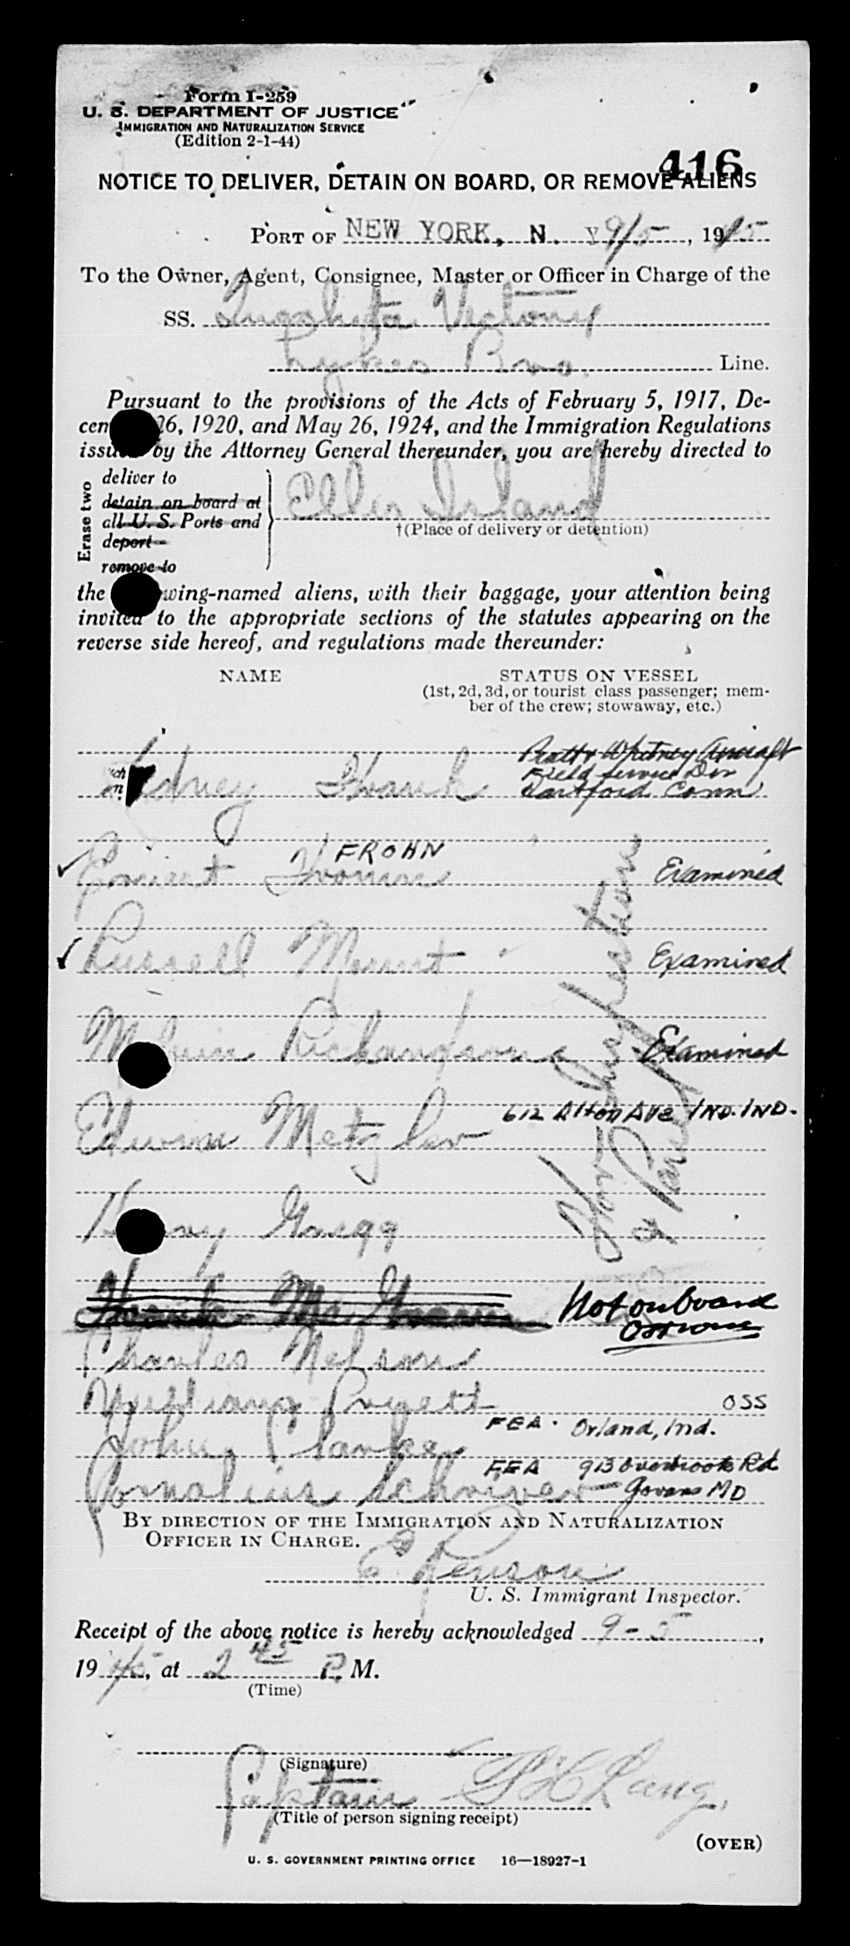 Form I-259
U. S. DEPARTMENT OF JUSTICE
IMMIGRATION AND NATURALIZATION SERVICE
(Edition 2-1-44)
416
NOTICE TO DELIVER, DETAIN ON BOARD, OR REMOVE ALIENS
PORT OF NEW YORK, N. Y 9/5, 1945
To the Owner, Agent, Consignee, Master or Officer in Charge of the
SS. Victory
Lykes Bros. Line.
Pursuant to the provisions of the Acts of February 5, 1917, De-
cem 26, 1920, and May 26, 1924, and the Immigration Regulations
issued by the Attorney General thereunder, you are hereby directed to
Erase two
deliver to
detain on board at
all U. S. Ports and
deport
remove to
Ellis Island
†(Place of delivery or detention)
the wing-named aliens, with their baggage, your attention being
invited to the appropriate sections of the statutes appearing on the
reverse side hereof, and regulations made thereunder:
NAME STATUS ON VESSEL
(1st, 2d, 3d, or tourist class passenger; mem-
ber of the crew; stowaway, etc.)
Pratt & Whitney Aircraft
Field Service Div
Sidney Hartford Conn
FROHN
Examined
Russell Mount Examined
Melvin Richardson Examined
612 Alton Ave IND. IND.
Edwin Metzler
For Inspection
&
Gregg
Not on board
Charles Nelson
William Pruett OSS
FEA. Orland, Ind.
John Clarke
FEA 913 Overbrook Rd
Cornelius Schriver Govans MD
BY DIRECTION OF THE IMMIGRATION AND NATURALIZATION
OFFICER IN CHARGE.
E.
U. S. Immigrant Inspector.
Receipt of the above notice is hereby acknowledged 9-5,
1945, at 2 45 P. M.
(Time)
(Signature)
Captain Lang
(Title of person signing receipt)
(OVER)
U. S. GOVERNMENT PRINTING OFFICE 16—18927-1